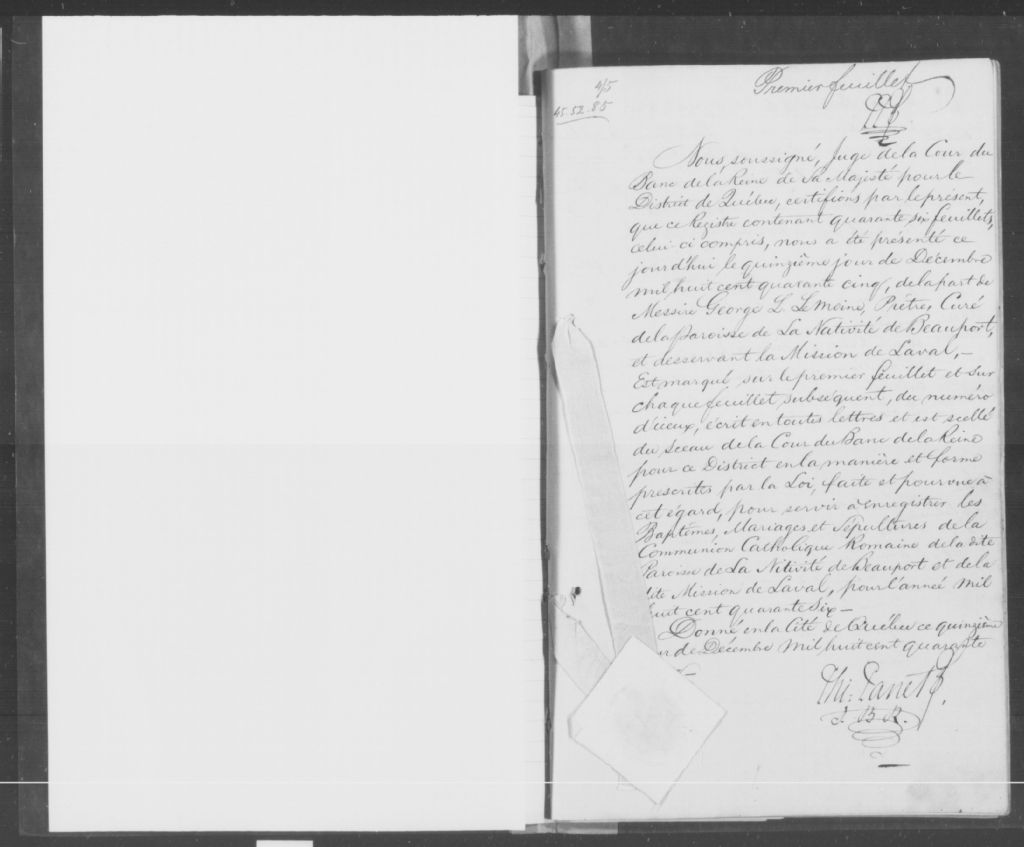 Premier feuillet
45
45. 52. 85
Nous, soussigné, Juge de la Cour du
Banc de la Reine de Sa Majesté pour le
District de Québec, certifions par le présent,
que ce Registre contenant quarante six feuillets,
celui-ci compris, nous a été présenté ce
jourd'hui le quinzième jour de Décembre
mil huit cent quarante cinq, de la part de
Messire George L. LeMoine, Prêtre, Curé
de la Paroisse de La Nativité de Beauport,
et desservant la Mission de Laval, —
Est marqué sur le premier feuillet et sur
chaque feuillet subséquent, du numéro
d'iceux, écrit en toutes lettres et est scellé
du Sceau de la Cour du Banc de la Reine
pour ce District en la manière et forme
prescrites par la Loi, faite et pourvue à
cet égard, pour servir à enregistrer les
Baptêmes, Mariages et Sépultures de la
Communion Catholique Romaine de la dite
Paroisse de La Nitivité de Beauport et de la
dite Mission de Laval, pour l'année mil
huit cent quarante Six —
Donné en la Cité de Québec ce quinzième
ur de Décembre mil huit cent quarante
Ph: Panet
J. B. R.